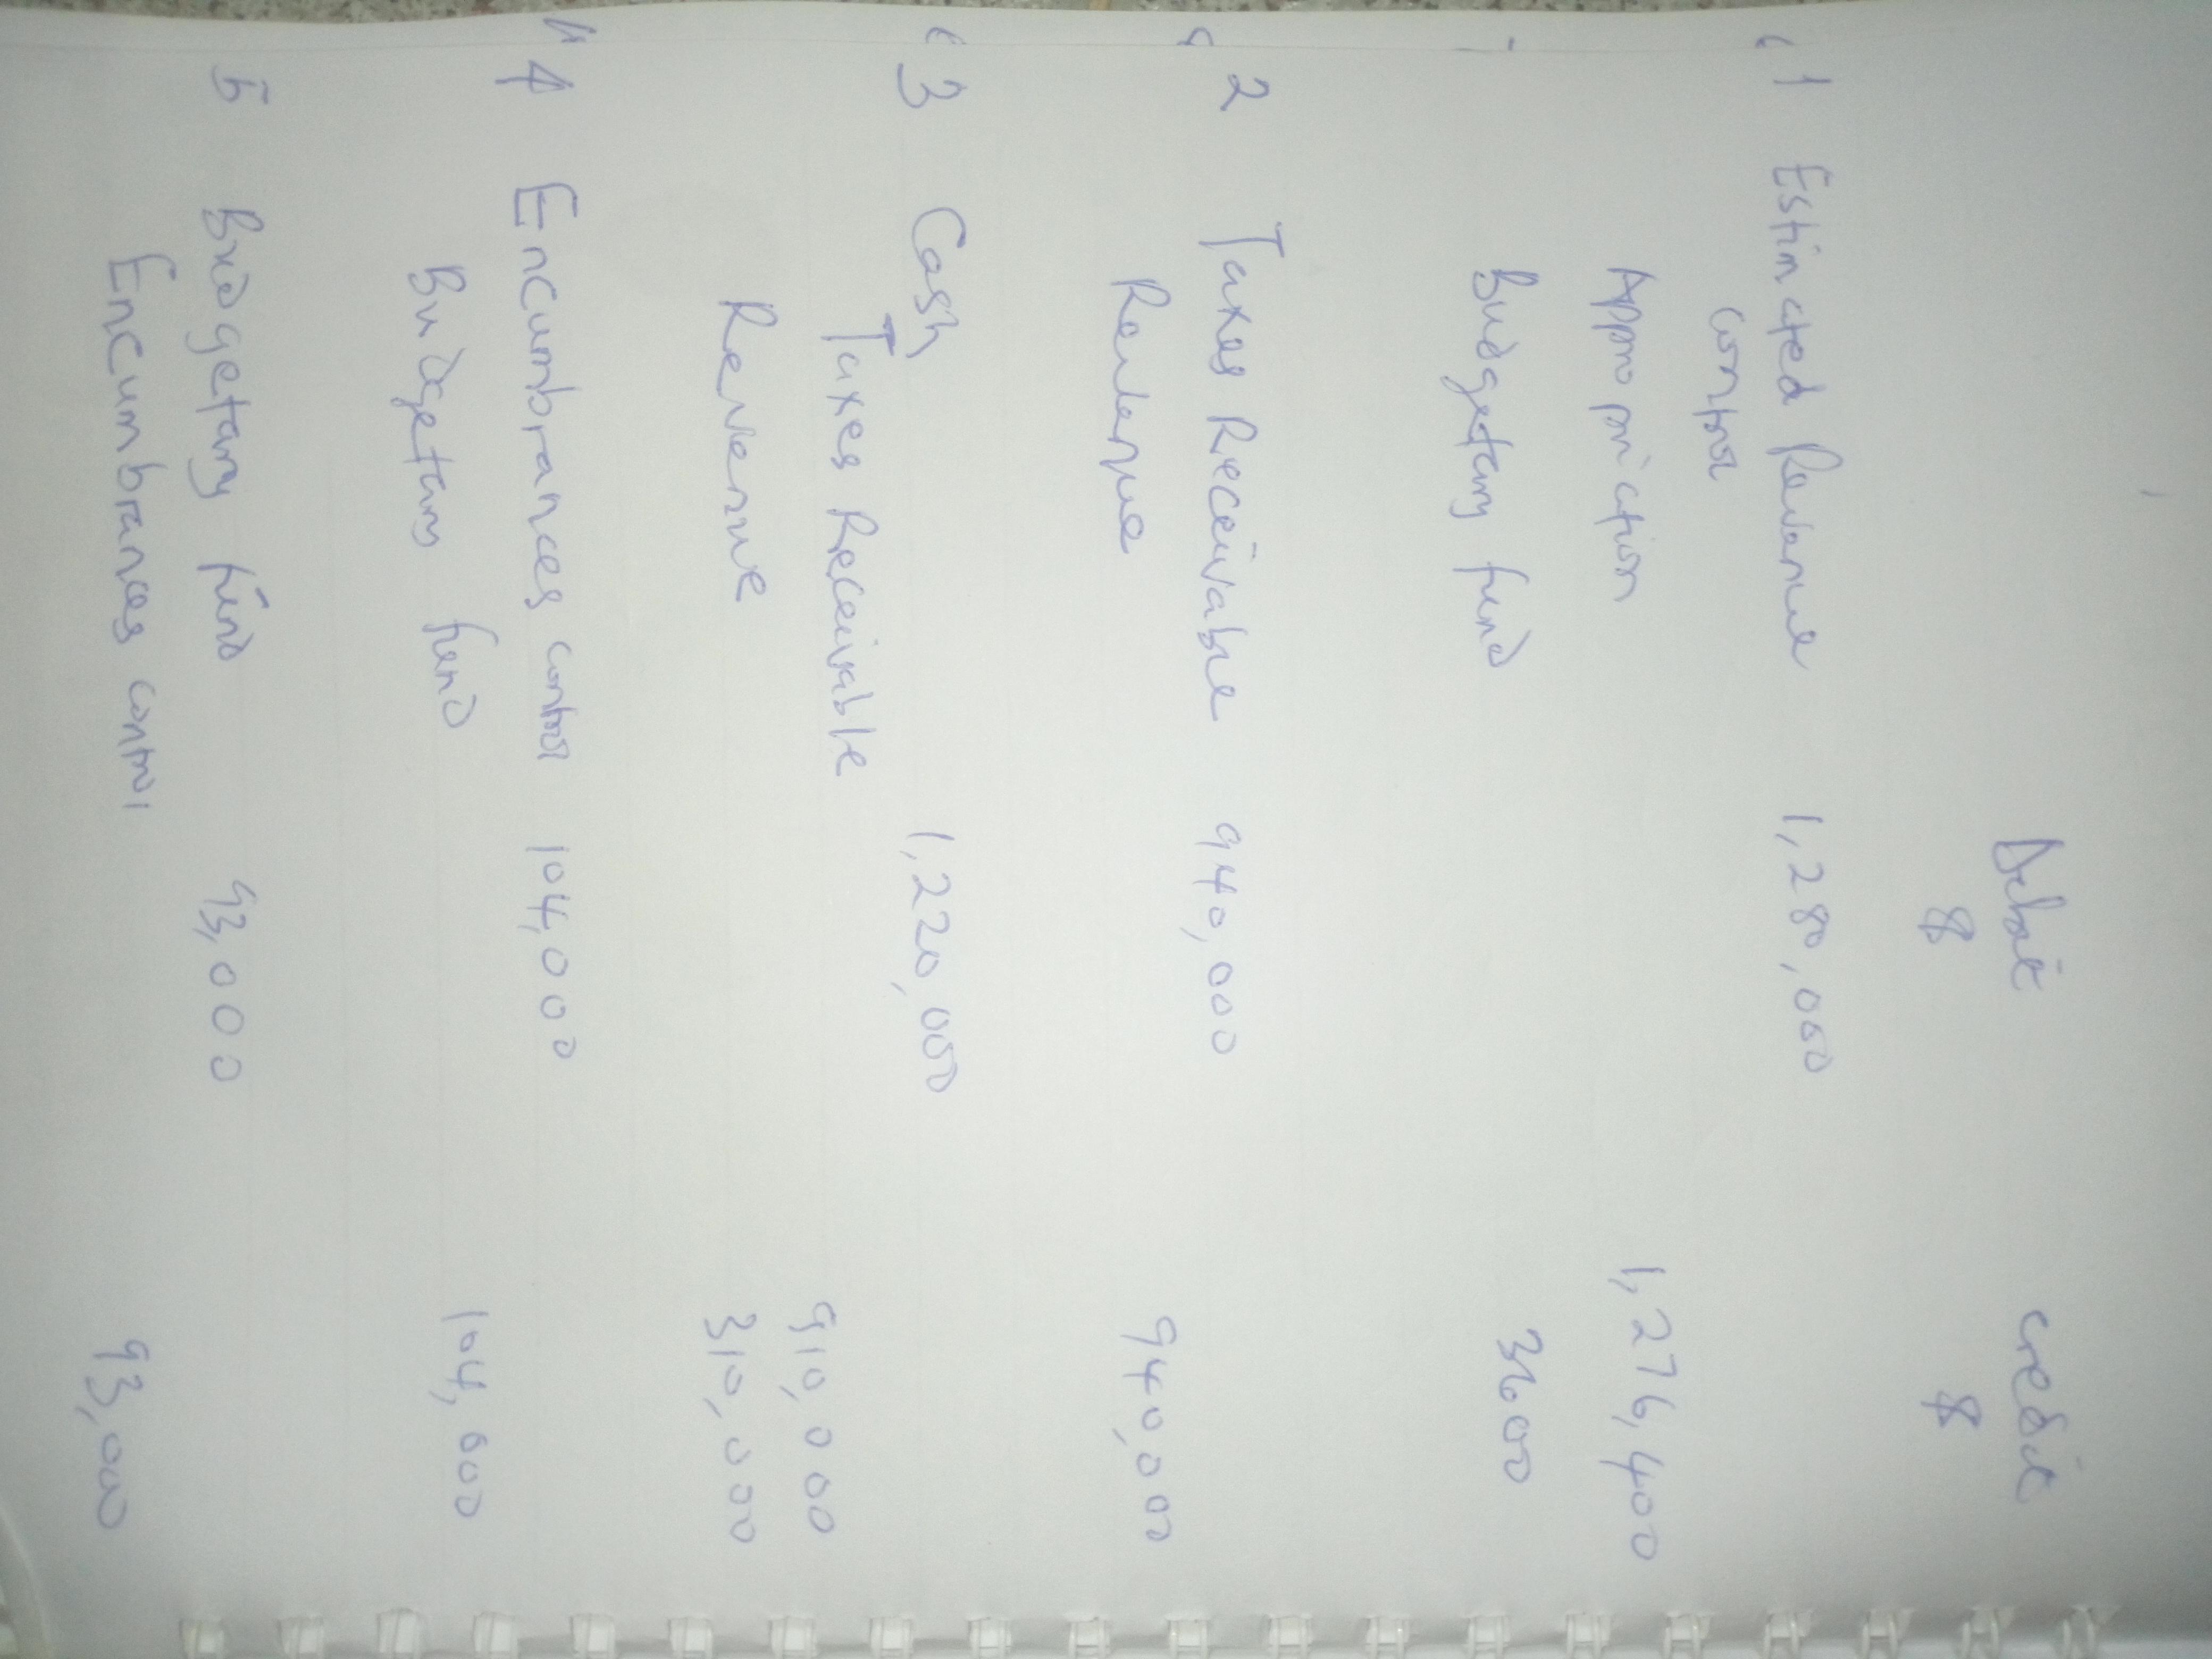 Debit Credit
$ $
1 Estimated Revenue 1,280,000
control
Appropriation 1,276,400
Budgetary fund 3600
2 Taxes Receivable 940,000
Revenue 940,000
3 Cash 1,220,000
Taxes Receivable 910,000
Revenue 310,000
4 Encumbrances control 104,000
Budgetary fund 104,000
5 Budgetary fund 93,000
Encumbrances control 93,000